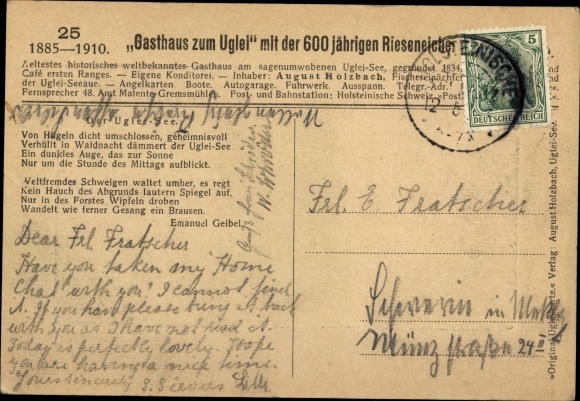 25
1885—1910. „Gasthaus zum Uglei“ mit der 600 jährigen Rieseneiche
Aeltestes historisches weltbekanntes Gasthaus am sagenumwobenen Uglei-See, gegründet 1834.
Café ersten Ranges. — Eigene Konditorei. — Inhaber: August Holzbach, Fischereipächter
der Uglei-Seeaue. — Angelkarten. Boote. Autogarage. Fuhrwerk. Ausspann. Telegr.-Adr.!
Fernsprecher 48. Amt Malente-Gremsmühlen. Post und Bahnstation: Holsteinische Schweiz. Post
Der Uglei-See.
Von Hügeln dicht umschlossen, geheimnisvoll
Verhüllt in Waldnacht dämmert der Uglei-See
Ein dunkles Auge, das zur Sonne
Nur um die Stunde des Mittags aufblickt.
Weltfremdes Schweigen waltet umher, es regt
Kein Hauch des Abgrunds lautern Spiegel auf,
Nur in des Forstes Wipfeln droben
Wandelt wie ferner Gesang ein Brausen.
Emanuel Geibel.
Dear Frl. Fratscher
Have you taken my "Home
Chat" with you? I cannot find
it. If you have please bring it back
with you as I have not read it.
Today is perfectly lovely. I hope
you are having a nice time.
Yours sincerely S. Sievers
5
DEUTSCHES REICH
Frl. E Fratscher
Schwerin in Meckl
Münzstraße 24 II
»Original Uglei-Karte.« Verlag: August Holzbach, Uglei-See.